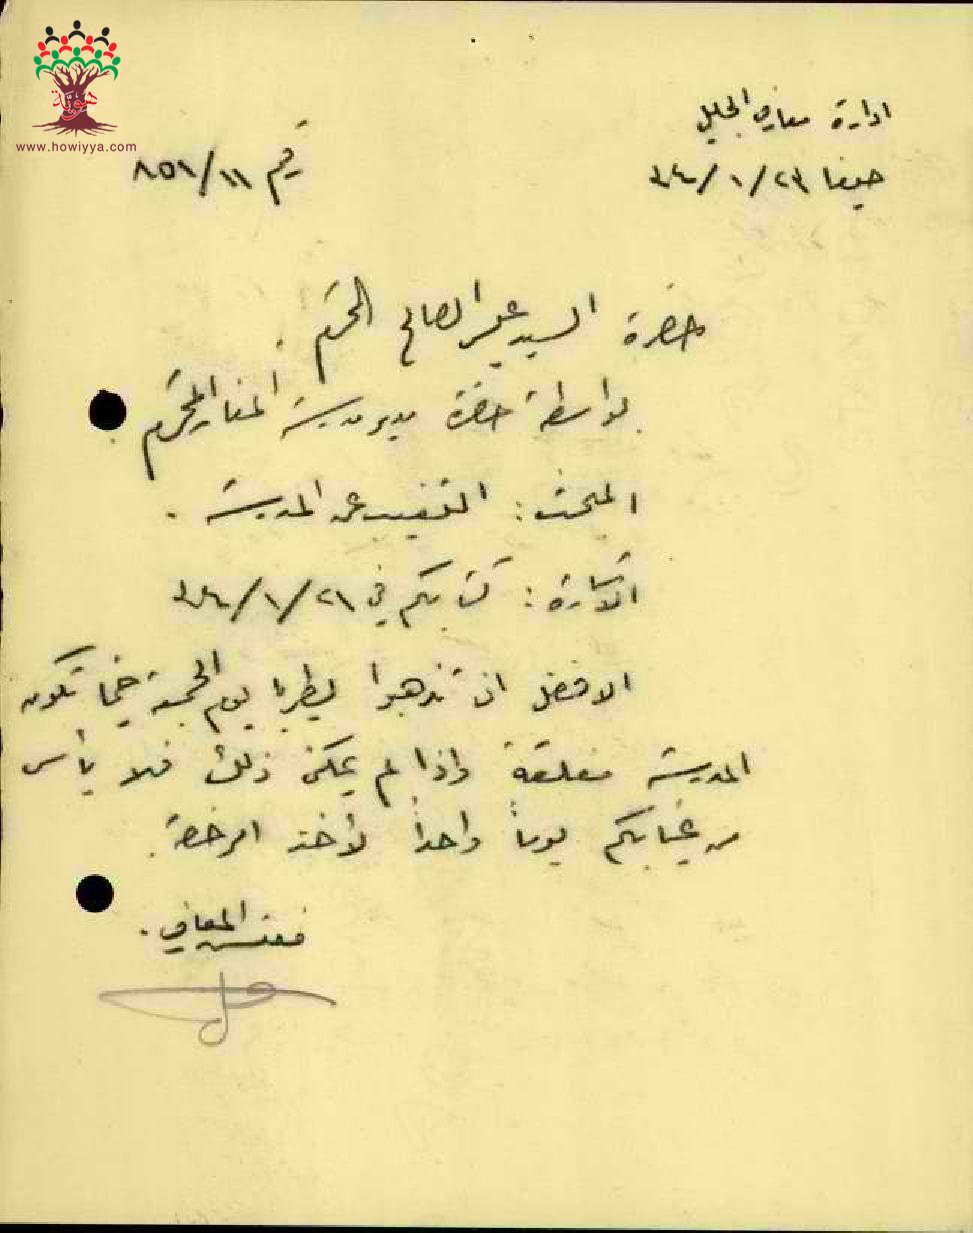 هوية
www.howiyya.com
ادارة معارف الجليل
حيفا ٢٣/١/
رقم ١١/٨٥١
حضرة السيد علي الصالح المحترم
بواسطة حضرة مدير مدرسة المغار المحترم
المبحث: التغيب عن المدرسة.
الاشارة: كتابكم في ٢١/١/
الافضل ان تذهبوا لطبريا يوم الجمعة حينما تكون
المدرسة مغلقة واذا لم يمكن ذلك فلا بأس
من غيابكم يوماً واحداً لأخذ الرخصة.
مفتش المعارف.